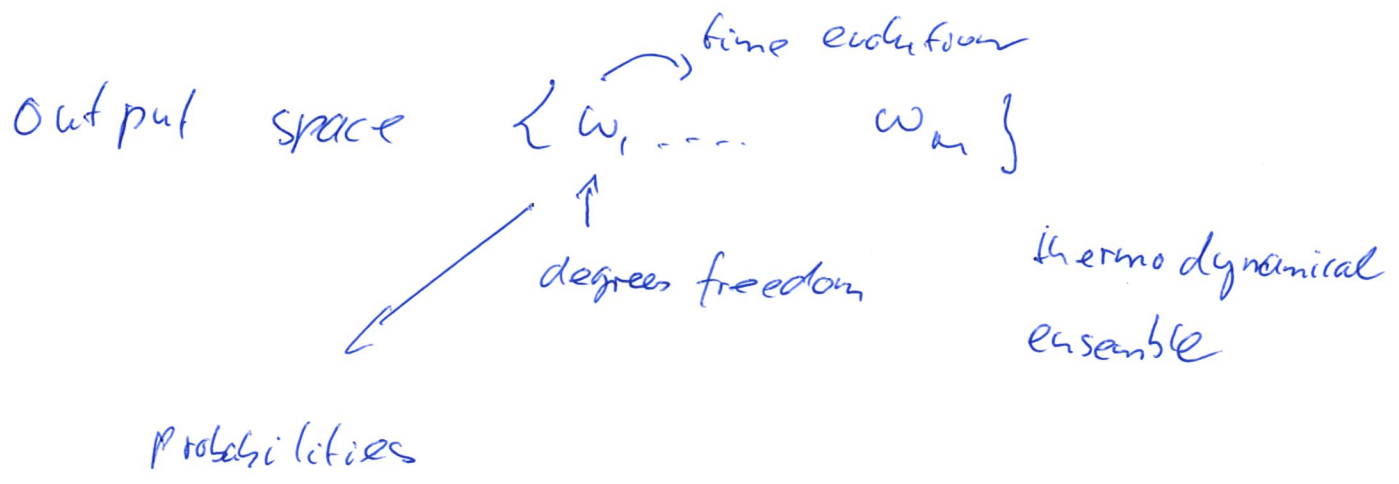 time evolution
output space { ω₁ .... ωₘ }
degrees freedom
thermodynamical
ensemble
probabilities